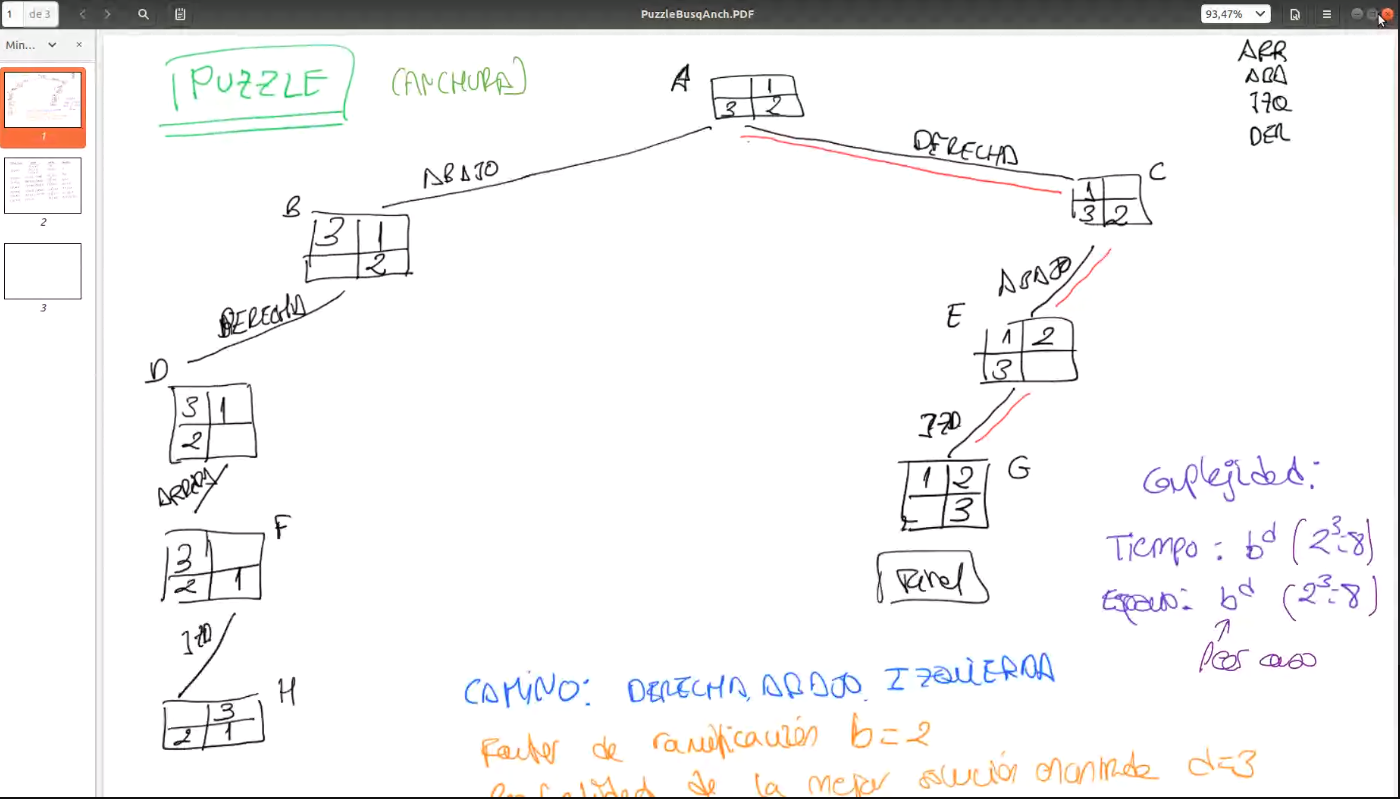 1 de 3
PuzzleBusqAnch.PDF
93,47%
Min...
1
2
3
PUZZLE
(ANCHURA)
ARR
ABA
IZQ
DER
A
1
3 2
ABAJO
DERECHA
B
3 1
2
C
1
3 2
DERECHA
ABAJO
D
3 1
2
E
1 2
3
ARRIBA
IZQ
F
3
2 1
G
1 2
3
Final
IZQ
H
3
2 1
Complejidad:
Tiempo: b^d (2^3=8)
Espacio: b^d (2^3=8)
Peor caso
CAMINO: DERECHA, ABAJO, IZQUIERDA
Factor de ramificación b=2
de la mejor solución encontrada d=3